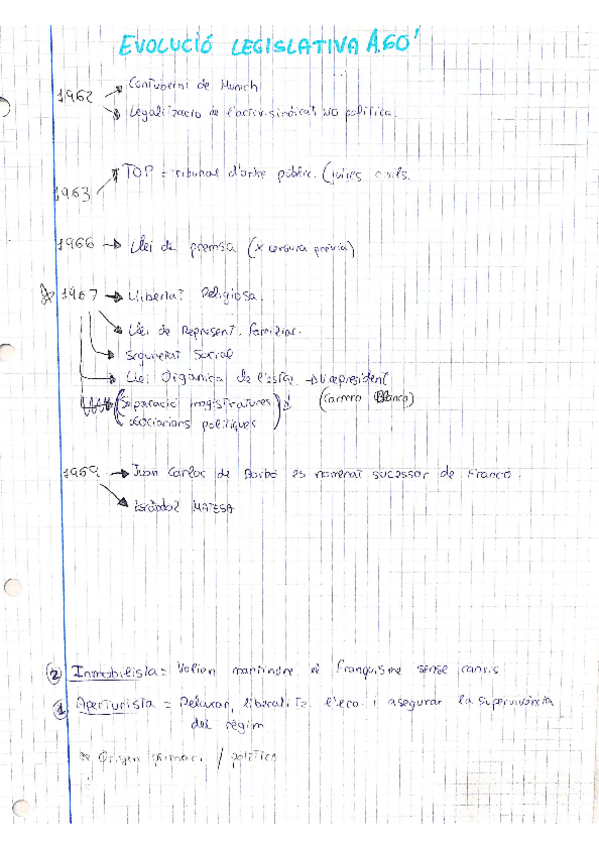 EVOLUCIÓ LEGISLATIVA A.60'
1962 → Contuberni de Munich
→ Legalització de l'activ. sindical NO política.
1963 → TOP = Tribunal d'ordre públic. (juires civils.
1966 → Llei de premsa (x censura prèvia)
1967 → Llibertat Religiosa.
→ Llei de Represent. familiar.
→ Seguretat Social
→ Llei Orgànica de l'estat. → Vicepresident
(separació magistratures) (Carrero Blanco)
associacions polítiques)
1969 → Juan Carlos de Borbó es nomenat sucessor de Franco.
→ Escàndol MATESA
② Inmobilista = Volien mantindre el franquisme sense canvis
① Aperturista = Relaxar, liberalitz. l'eco. i asegurar la supervivència
del règim
* Origen / político